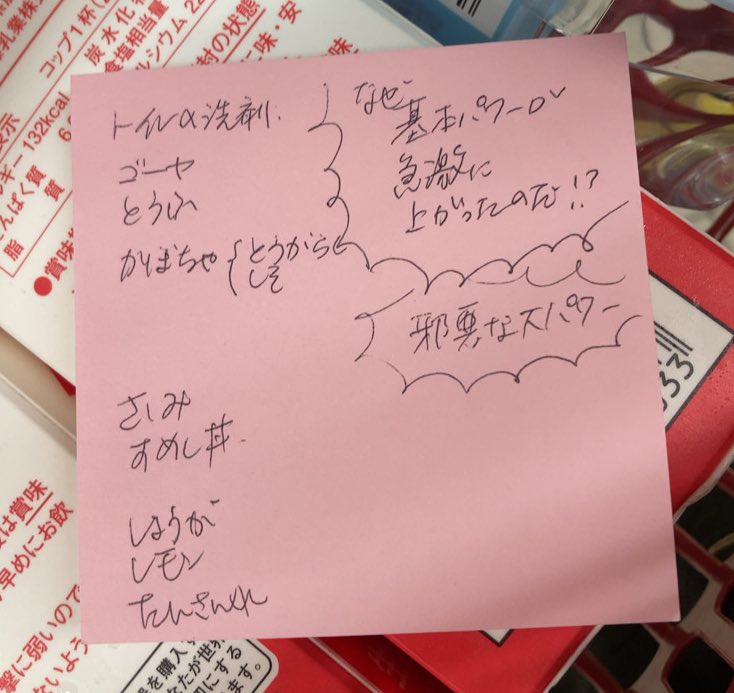 トイレの洗剤.
ゴーヤ
とうふ
かぼちゃ{とうがらし
しそ
さしみ
すめし丼.
しょうが
レモン
たんさん
なぜ
基本パワーが
急激に
上がったのだ!?
邪悪なスパワー
コップ1杯(
炭水化
食塩相当量
ルシウム 22
132kcal
たんぱく質
脂質
●賞味
封の状態
に味・安
味
は賞味
早めにお飲
撃に弱いので
ないよう
を購入
なたが世界
にする
ます。
333